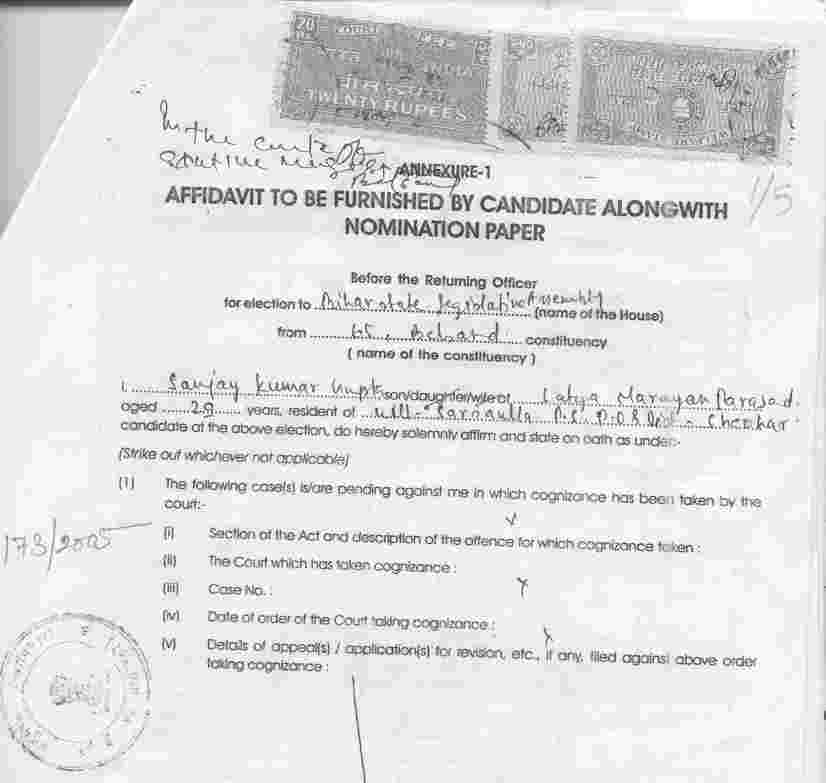 20
COURT
INDIA
TWENTY RUPEES
In the court of
ANNEXURE-1
1/5
AFFIDAVIT TO BE FURNISHED BY CANDIDATE ALONGWITH
NOMINATION PAPER
Before the Returning Officer
for election to Bihar state legislative Assembly (name of the House)
from 65, constituency
( name of the constituency )
I, Sanjay Kumar Gupta son/daughter/wife of Satya Narayan Parasad
aged 29 years, resident of vill- P.S. P.O & Dist - Sheohar
candidate at the above election, do hereby solemnly affirm and state on oath as under:-
(Strike out whichever not applicable)
(1) The following case(s) is/are pending against me in which cognizance has been taken by the
court:-
173/2005
(i) Section of the Act and description of the offence for which cognizance taken :
(ii) The Court which has taken cognizance :
(iii) Case No. :
(iv) Date of order of the Court taking cognizance :
(v) Details of appeal(s) / application(s) for revision, etc., if any, filed against above order
taking cognizance :